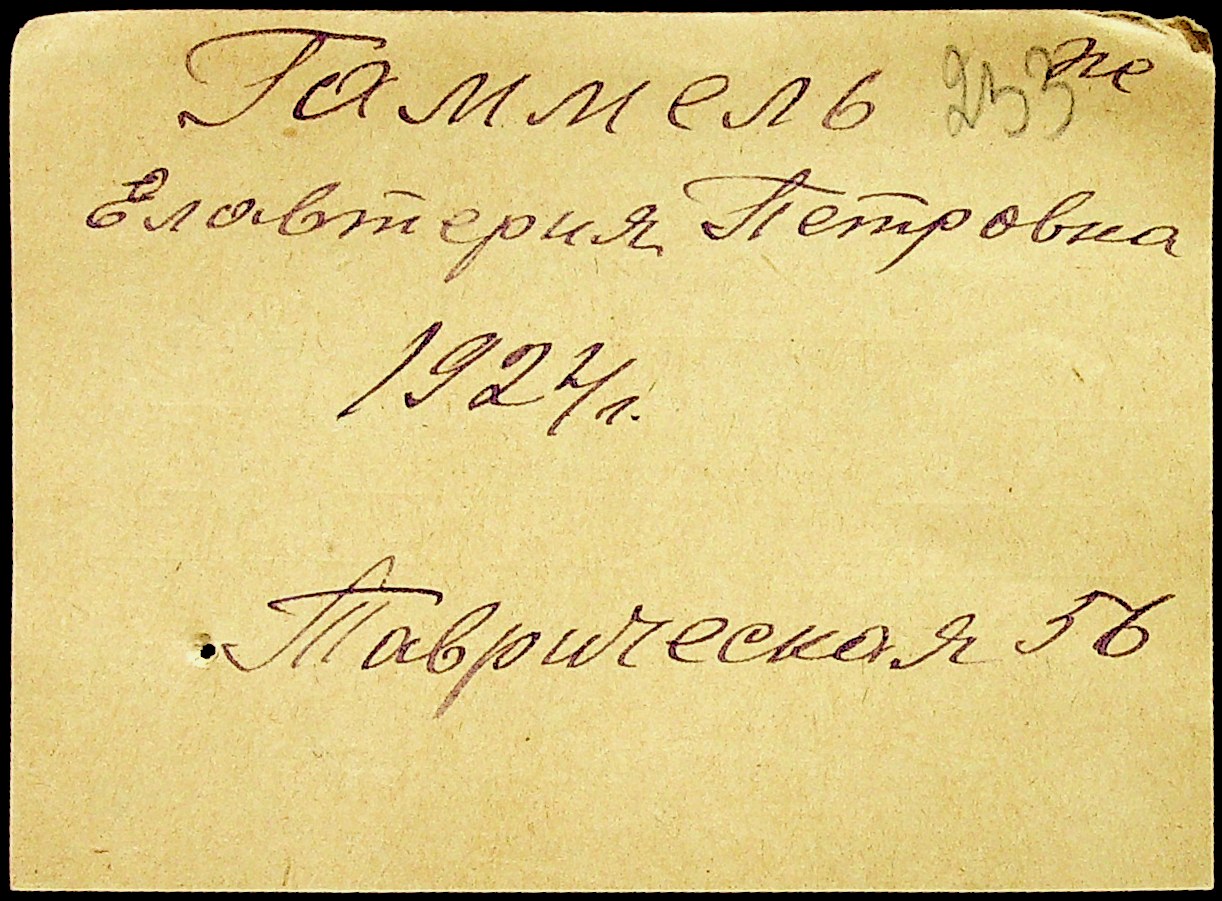 Гаммель 233
Елавтерия Петровна
1924 г.
Таврическая 56